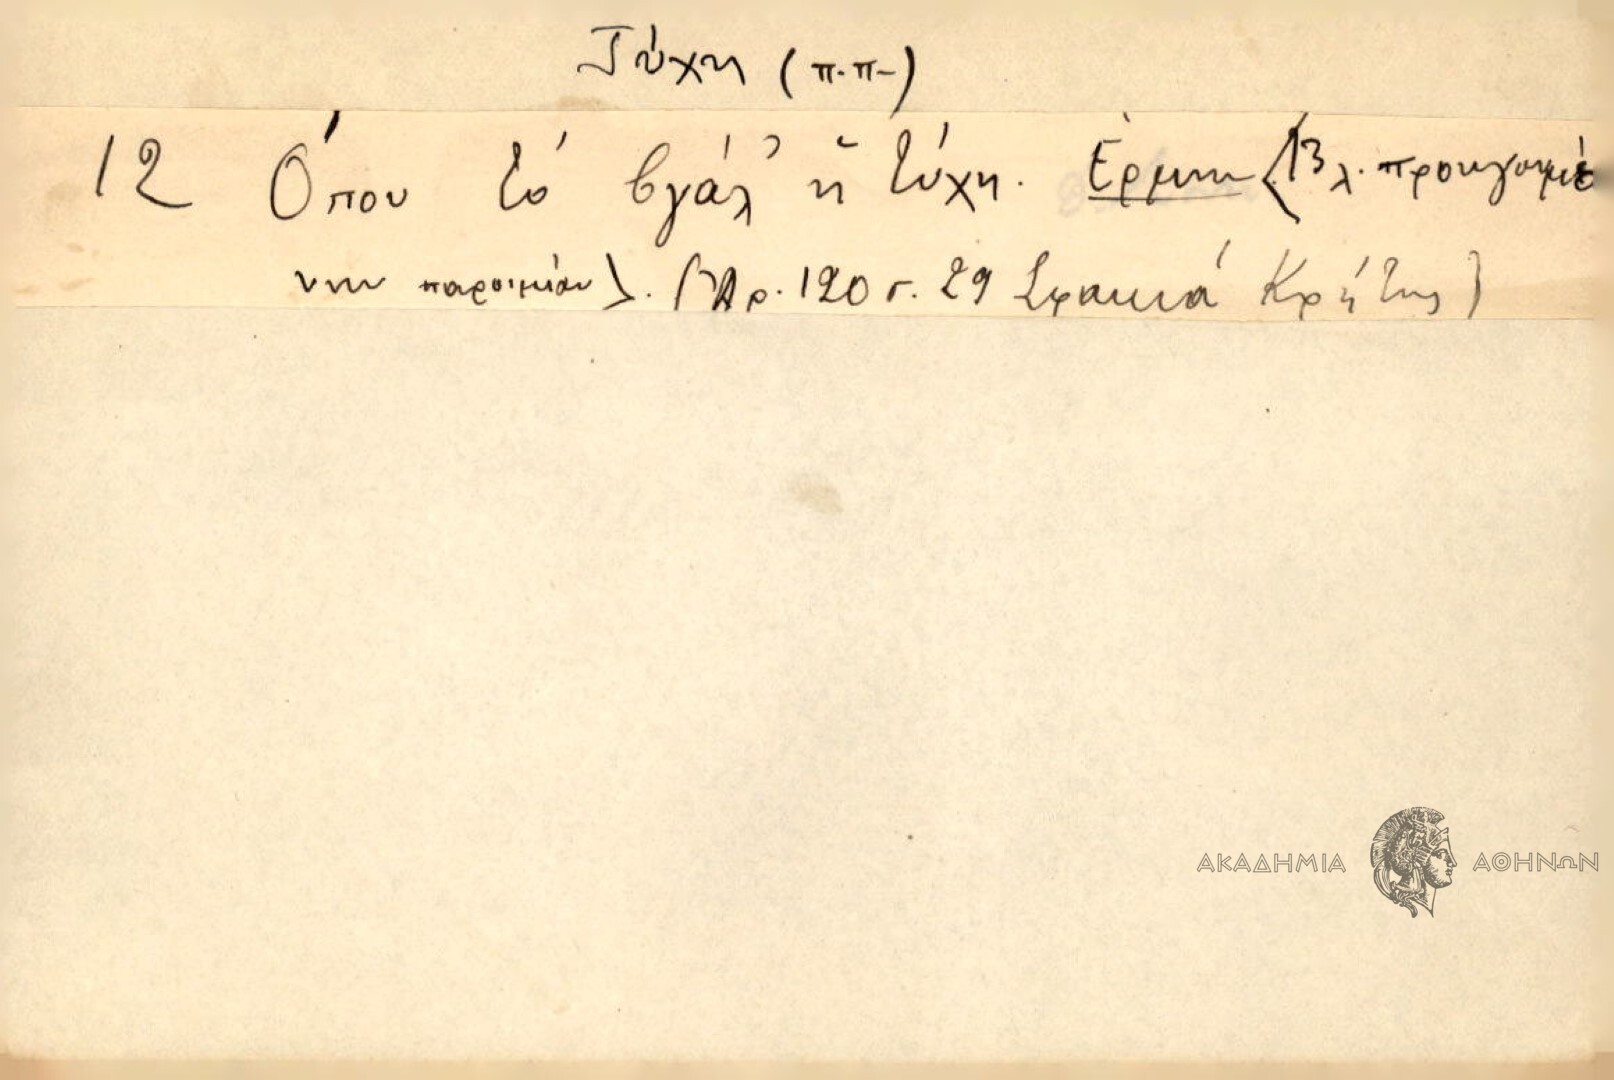 Τύχη (π.π-)
12 Όπου τό βγάλ' ἡ τύχη. Ἑρμην <βλ. προηγουμέ
νην παροιμίαν>. (Ἀρ. 120 σ. 29 Σφακιά Κρήτης)
ΑΚΑΔΗΜΙΑ ΑΘΗΝΩΝ